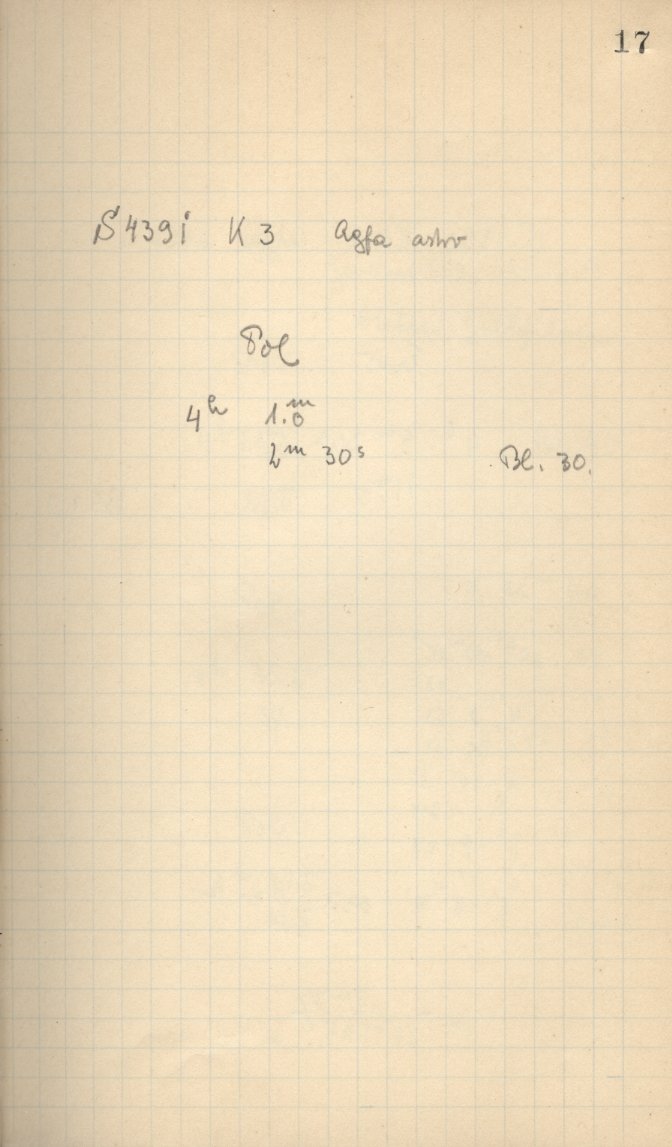 17
S4391 K3 Agfa astro
Pol
4h 1.m0
2m 30s Bl. 30.